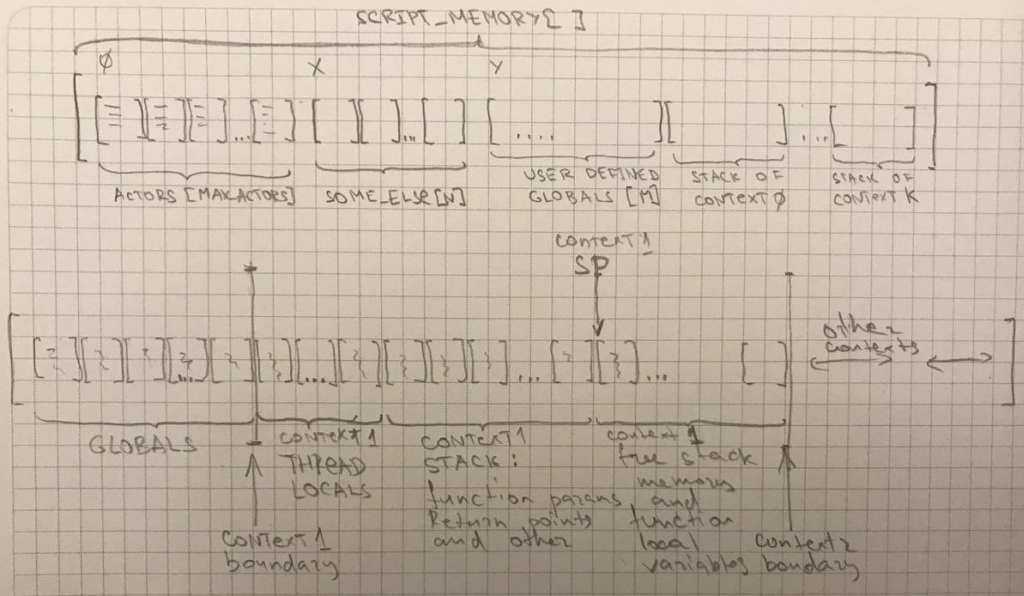 SCRIPT_MEMORY[ ]
Ø X Y
ACTORS [MAX.ACTORS]
SOME_ELSE[N]
USER DEFINED
GLOBALS [M]
STACK OF
CONTEXT Ø
STACK OF
CONTEXT K
CONTEXT 1
SP
other
contexts
GLOBALS
CONTEXT 1
THREAD
LOCALS
CONTEXT 1
STACK:
function params
Return points
and other
context 1
free stack
memory
and
function
local
variables
CONTEXT 1
boundary
context 2
boundary